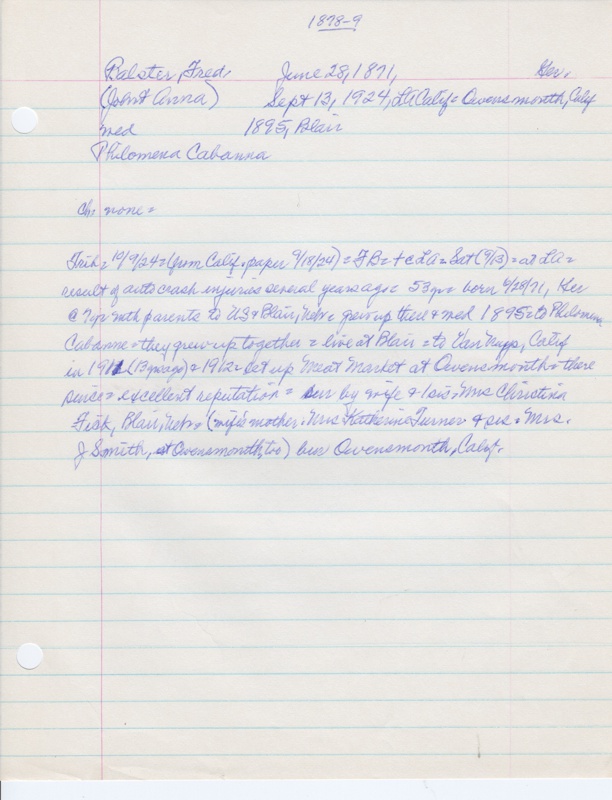 1878-9
Balster, Fred June 28, 1871, Ger.
(John & Anna) Sept 13, 1924, LA Calif = Owensmonth, Calif
med 1895, Blair
Philomena Cabanna
Ch: none =
Trib = 10/9/24 = (from Calif. paper 9/18/24) = FB = + @ LA = Sat (9/13) = at LA =
result of auto crash injuries several years ago = 53yr = born 6/28/71, Ger
@ 7yr with parents to US & Blair, Nebr = grew up there & med 1895 = to Philomena
Cabanna = they grew up together = live at Blair = to Van Nuys, Calif
in 1911 (13yrs ago) = 1912 = set up Meat Market at Owensmonth = there
since = excellent reputation = sur by wife & 1 sis = Mrs Christina
Fisk, Blair, Nebr = (wife's mother = Mrs Katherine Turner & sis = Mrs.
J Smith, at Owensmonth, too) bur Owensmonth, Calif.